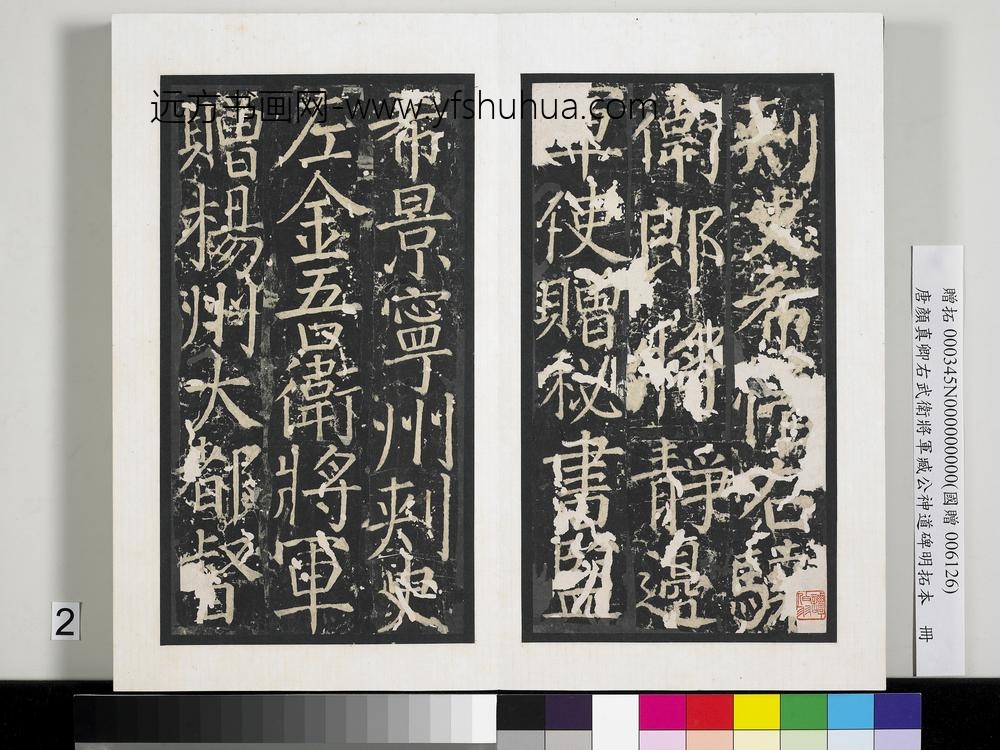 远方书画网-www.yfshuhua.com
刾史希
名驍
衛郎將靜邊
軍使贈秘書監
希景寧州刾史
左金吾衛將軍
贈楊州大都督
贈拓 000345N000000000(國贈 006126)
唐顏真卿右武衛將軍臧公神道碑明拓本 冊
2